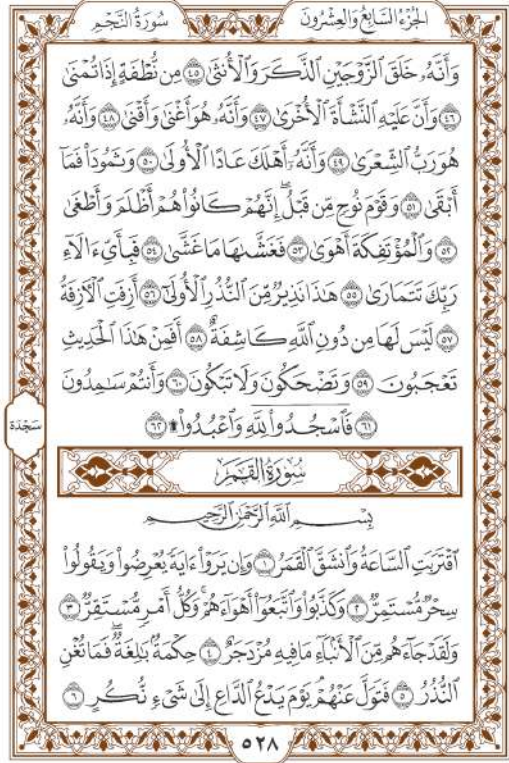 سُورَةُ النَّجْمِ
الجُزْءُ السَّابِعُ وَالعِشْرُونَ
وَأَنَّهُۥ خَلَقَ ٱلزَّوْجَيْنِ ٱلذَّكَرَ وَٱلْأُنثَىٰ ٤٥ مِن نُّطْفَةٍ إِذَا تُمْنَىٰ
٤٦ وَأَنَّ عَلَيْهِ ٱلنَّشْأَةَ ٱلْأُخْرَىٰ ٤٧ وَأَنَّهُۥ هُوَ أَغْنَىٰ وَأَقْنَىٰ ٤٨ وَأَنَّهُۥ
هُوَ رَبُّ ٱلشِّعْرَىٰ ٤٩ وَأَنَّهُۥٓ أَهْلَكَ عَادًا ٱلْأُولَىٰ ٥٠ وَثَمُودَا۟ فَمَآ
أَبْقَىٰ ٥١ وَقَوْمَ نُوحٍ مِّن قَبْلُ ۖ إِنَّهُمْ كَانُوا۟ هُمْ أَظْلَمَ وَأَطْغَىٰ
٥٢ وَٱلْمُؤْتَفِكَةَ أَهْوَىٰ ٥٣ فَغَشَّىٰهَا مَا غَشَّىٰ ٥٤ فَبِأَىِّ ءَالَآءِ
رَبِّكَ تَتَمَارَىٰ ٥٥ هَٰذَا نَذِيرٌ مِّنَ ٱلنُّذُرِ ٱلْأُولَىٰٓ ٥٦ أَزِفَتِ ٱلْـَٔازِفَةُ
٥٧ لَيْسَ لَهَا مِن دُونِ ٱللَّهِ كَاشِفَةٌ ٥٨ أَفَمِنْ هَٰذَا ٱلْحَدِيثِ
تَعْجَبُونَ ٥٩ وَتَضْحَكُونَ وَلَا تَبْكُونَ ٦٠ وَأَنتُمْ سَٰمِدُونَ
٦١ فَٱسْجُدُوا۟ لِلَّهِ وَٱعْبُدُوا۟ ۩ ٦٢
سَجْدَة
سُورَةُ القَمَرِ
بِسْمِ ٱللَّهِ ٱلرَّحْمَٰنِ ٱلرَّحِيمِ
ٱقْتَرَبَتِ ٱلسَّاعَةُ وَٱنشَقَّ ٱلْقَمَرُ ١ وَإِن يَرَوْا۟ ءَايَةً يُعْرِضُوا۟ وَيَقُولُوا۟
سِحْرٌ مُّسْتَمِرٌّ ٢ وَكَذَّبُوا۟ وَٱتَّبَعُوٓا۟ أَهْوَآءَهُمْ ۚ وَكُلُّ أَمْرٍ مُّسْتَقِرٌّ ٣
وَلَقَدْ جَآءَهُم مِّنَ ٱلْأَنۢبَآءِ مَا فِيهِ مُزْدَجَرٌ ٤ حِكْمَةٌۢ بَٰلِغَةٌ ۖ فَمَا تُغْنِ
ٱلنُّذُرُ ٥ فَتَوَلَّ عَنْهُمْ ۘ يَوْمَ يَدْعُ ٱلدَّاعِ إِلَىٰ شَىْءٍ نُّكُرٍ ٦
٥٢٨